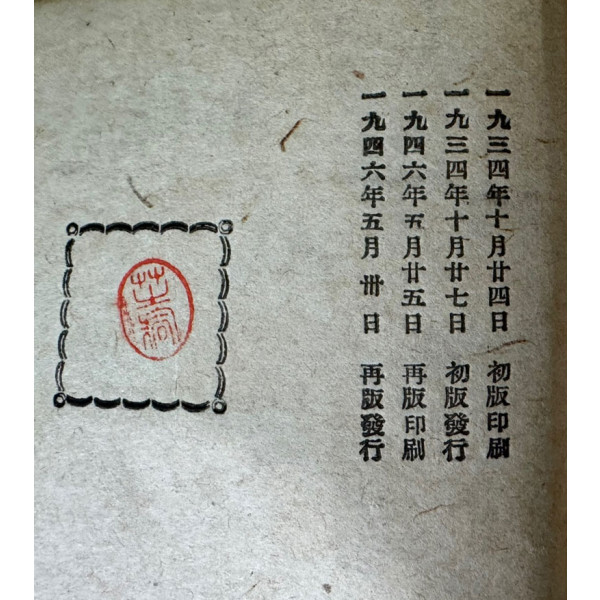 一九三四年十月廿四日 初版印刷
一九三四年十月廿七日 初版發行
一九四六年五月廿五日 再版印刷
一九四六年五月卅日 再版發行